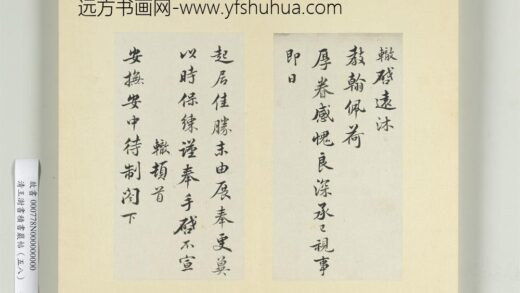 远方书画网-www.yfshuhua.com
轍啓遠沐
教翰佩荷
厚眷感愧良深承已視事
即日
起居佳勝未由展奉更冀
以時保練謹奉手啓不宣
轍頓首
安撫安中待制閣下
故書 000778N00000000
清王澍書積書巖帖(五八)